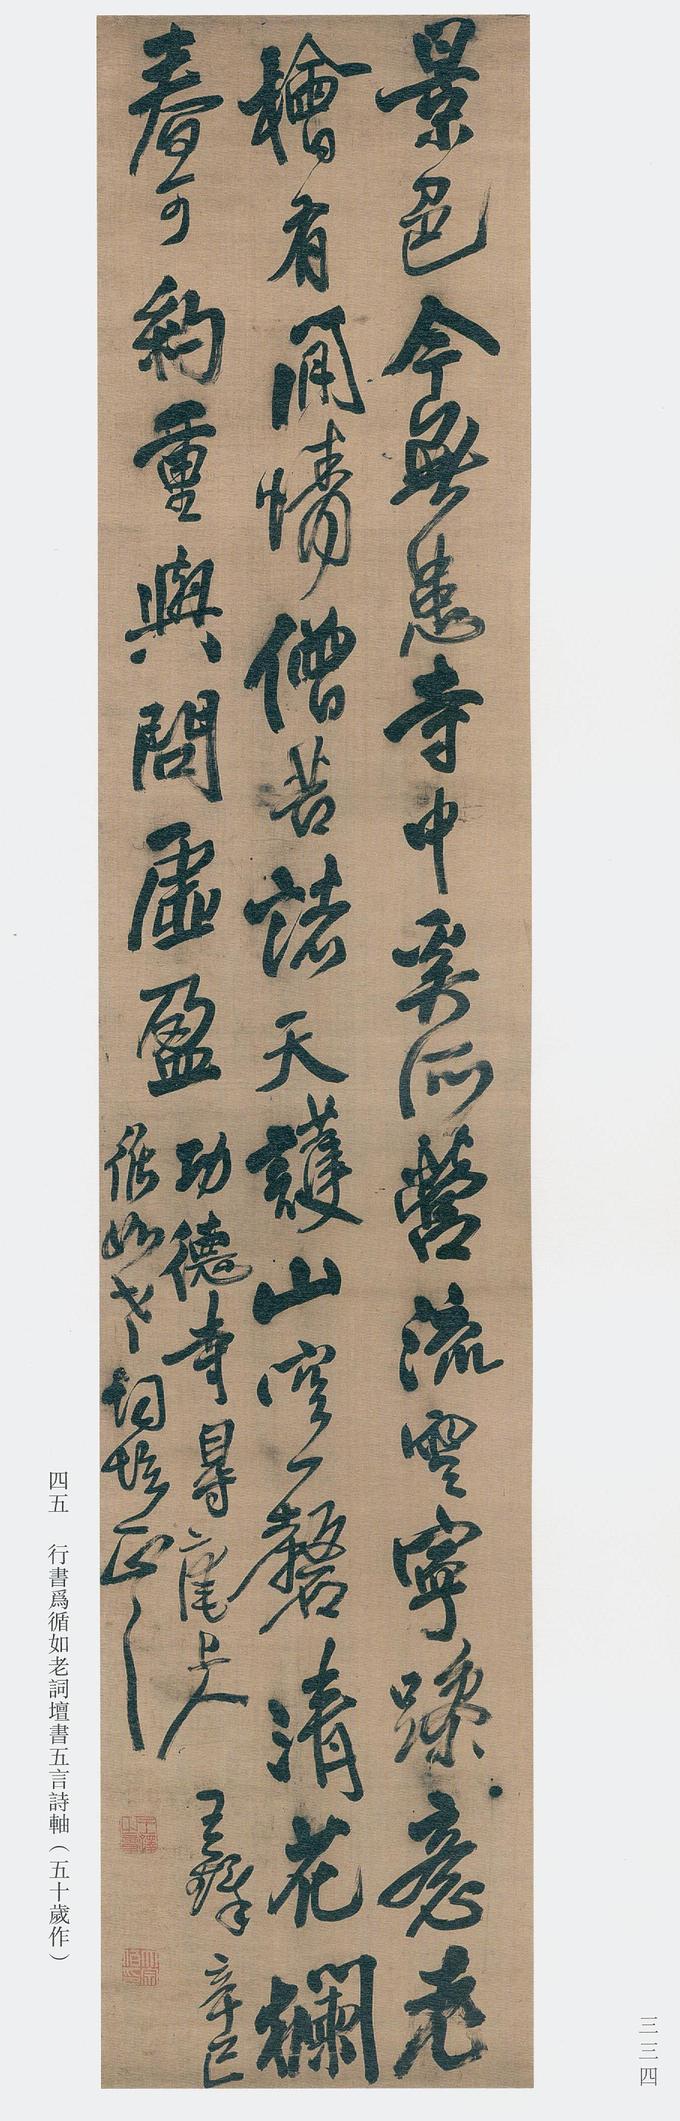 景色今無恙寺中奚所營流雲寧躁意老
檜有閒情僧苦諸天護山空一磬清花欄
春可約重與問虛盈
功德寺尋上人 王鐸 辛巳
循如老詞壇正之
四五 行書爲循如老詞壇書五言詩軸（五十歲作）
三三四